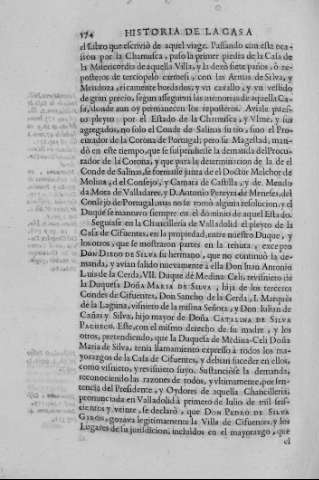 574 HISTORIA DE LA CASA
el Libro que escrivió de aquel viage. Passando con este oca-
sion por la Chamusca, puso la primer piedra de la Casa de
la Misericordia de aquella Villa, y la dexò siete paños, ò re-
posteros de terciopelo carmesi, con las Armas de Silva, y
Mendoza, ricamente bordados, y vn cavallo, y vn vestido
de gran precio, segun asseguran las memorias de aquella Ca-
sa, donde aun oy permanecen los reposteros. Aviale pues-
to pleyto por el Estado de la Chamusca, y Vlme, y sus
agregados, no solo el Conde de Salinas su tio, sino el Pro-
curador de la Corona de Portugal; pero su Magestad, man-
dò en este tiempo, que se suspendiesse la demanda del Procu-
rador de la Corona, y que para la determinacion de la de el
Conde de Salinas, se formasse junta de el Doctor Melchor de
Molina, del Consejo, y Camara de Castilla, y de Mendo
da Mota de Valladares, y D. Antonio Pereyra de Meneses, del
Consejo de Portugal, mas no se tomò alguna resolucion, y el
Duque se mantuvo siempre en el dominio de aquel Estado.
Seguiase en la Chancilleria de Valladolid el pleyto de la
Casa de Cifuentes, en la propiedad, entre nuestro Duque, y
los otros, que se mostraron partes en la tenuta, excepto
DON DIEGO DE SILVA su hermano, que no continuò la de-
manda, y avian salido nuevamente à ella Don Juan Antonio
Luis de la Cerda, VII. Duque de Medina-Celi, revisnieto de
la Duquesa DOÑA MARIA DE SILVA, hija de los terceros
Condes de Cifuentes, Don Sancho de la Cerda, I. Marquès
de la Laguna, visnieto de la misma Señora, y Don Iulian de
Cañas y Silva, hijo mayor de DOÑA CATALINA DE SILVA
PACHECO. Este, con el mismo derecho de su madre, y los
otros, pretendiendo, que la Duquesa de Medina-Celi Doña
Maria de Silva, tenia llamamiento expresso à todos los ma-
yorazgos de la Casa de Cifuentes, y debian suceder en ellos,
como visnieto, y revisnieto suyo. Sustanciòse la demanda,
reconociendo las razones de todos, y vltimamente, por sen-
tencia del Presidente, y Oydores de aquella Chancilleria,
pronunciada en Valladolid à primero de Iulio de mil seis-
cientos y veinte, se declarò, que DON PEDRO DE SILVA
GIRON, gozava legitimamente la Villa de Cifuentes, y los
Lugares de su jurisdicion, incluidos en el mayorazgo, que
el